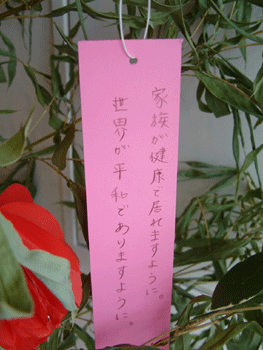 家族が健康で居れますように。
世界が平和でありますように。